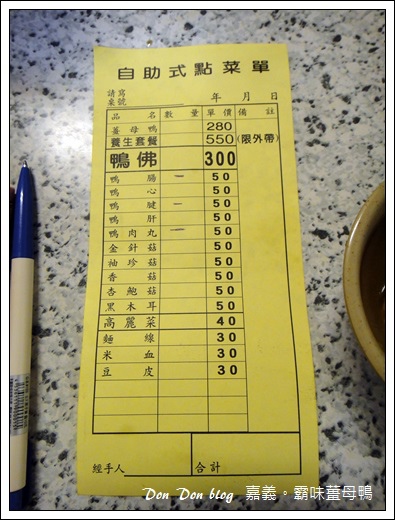 自助式點菜單
請寫
桌號 年 月 日
品名 數量 單價 備註
薑母鴨 280
養生套餐 550 (限外帶)
鴨佛 300
鴨腸 一 50
鴨心 50
鴨腱 一 50
鴨肝 50
鴨肉丸 一 50
金針菇 50
袖珍菇 50
香菇 50
杏鮑菇 50
黑木耳 50
高麗菜 40
麵線 30
米血 30
豆皮 30
經手人 合計
Don Don blog 嘉義。霸味薑母鴨